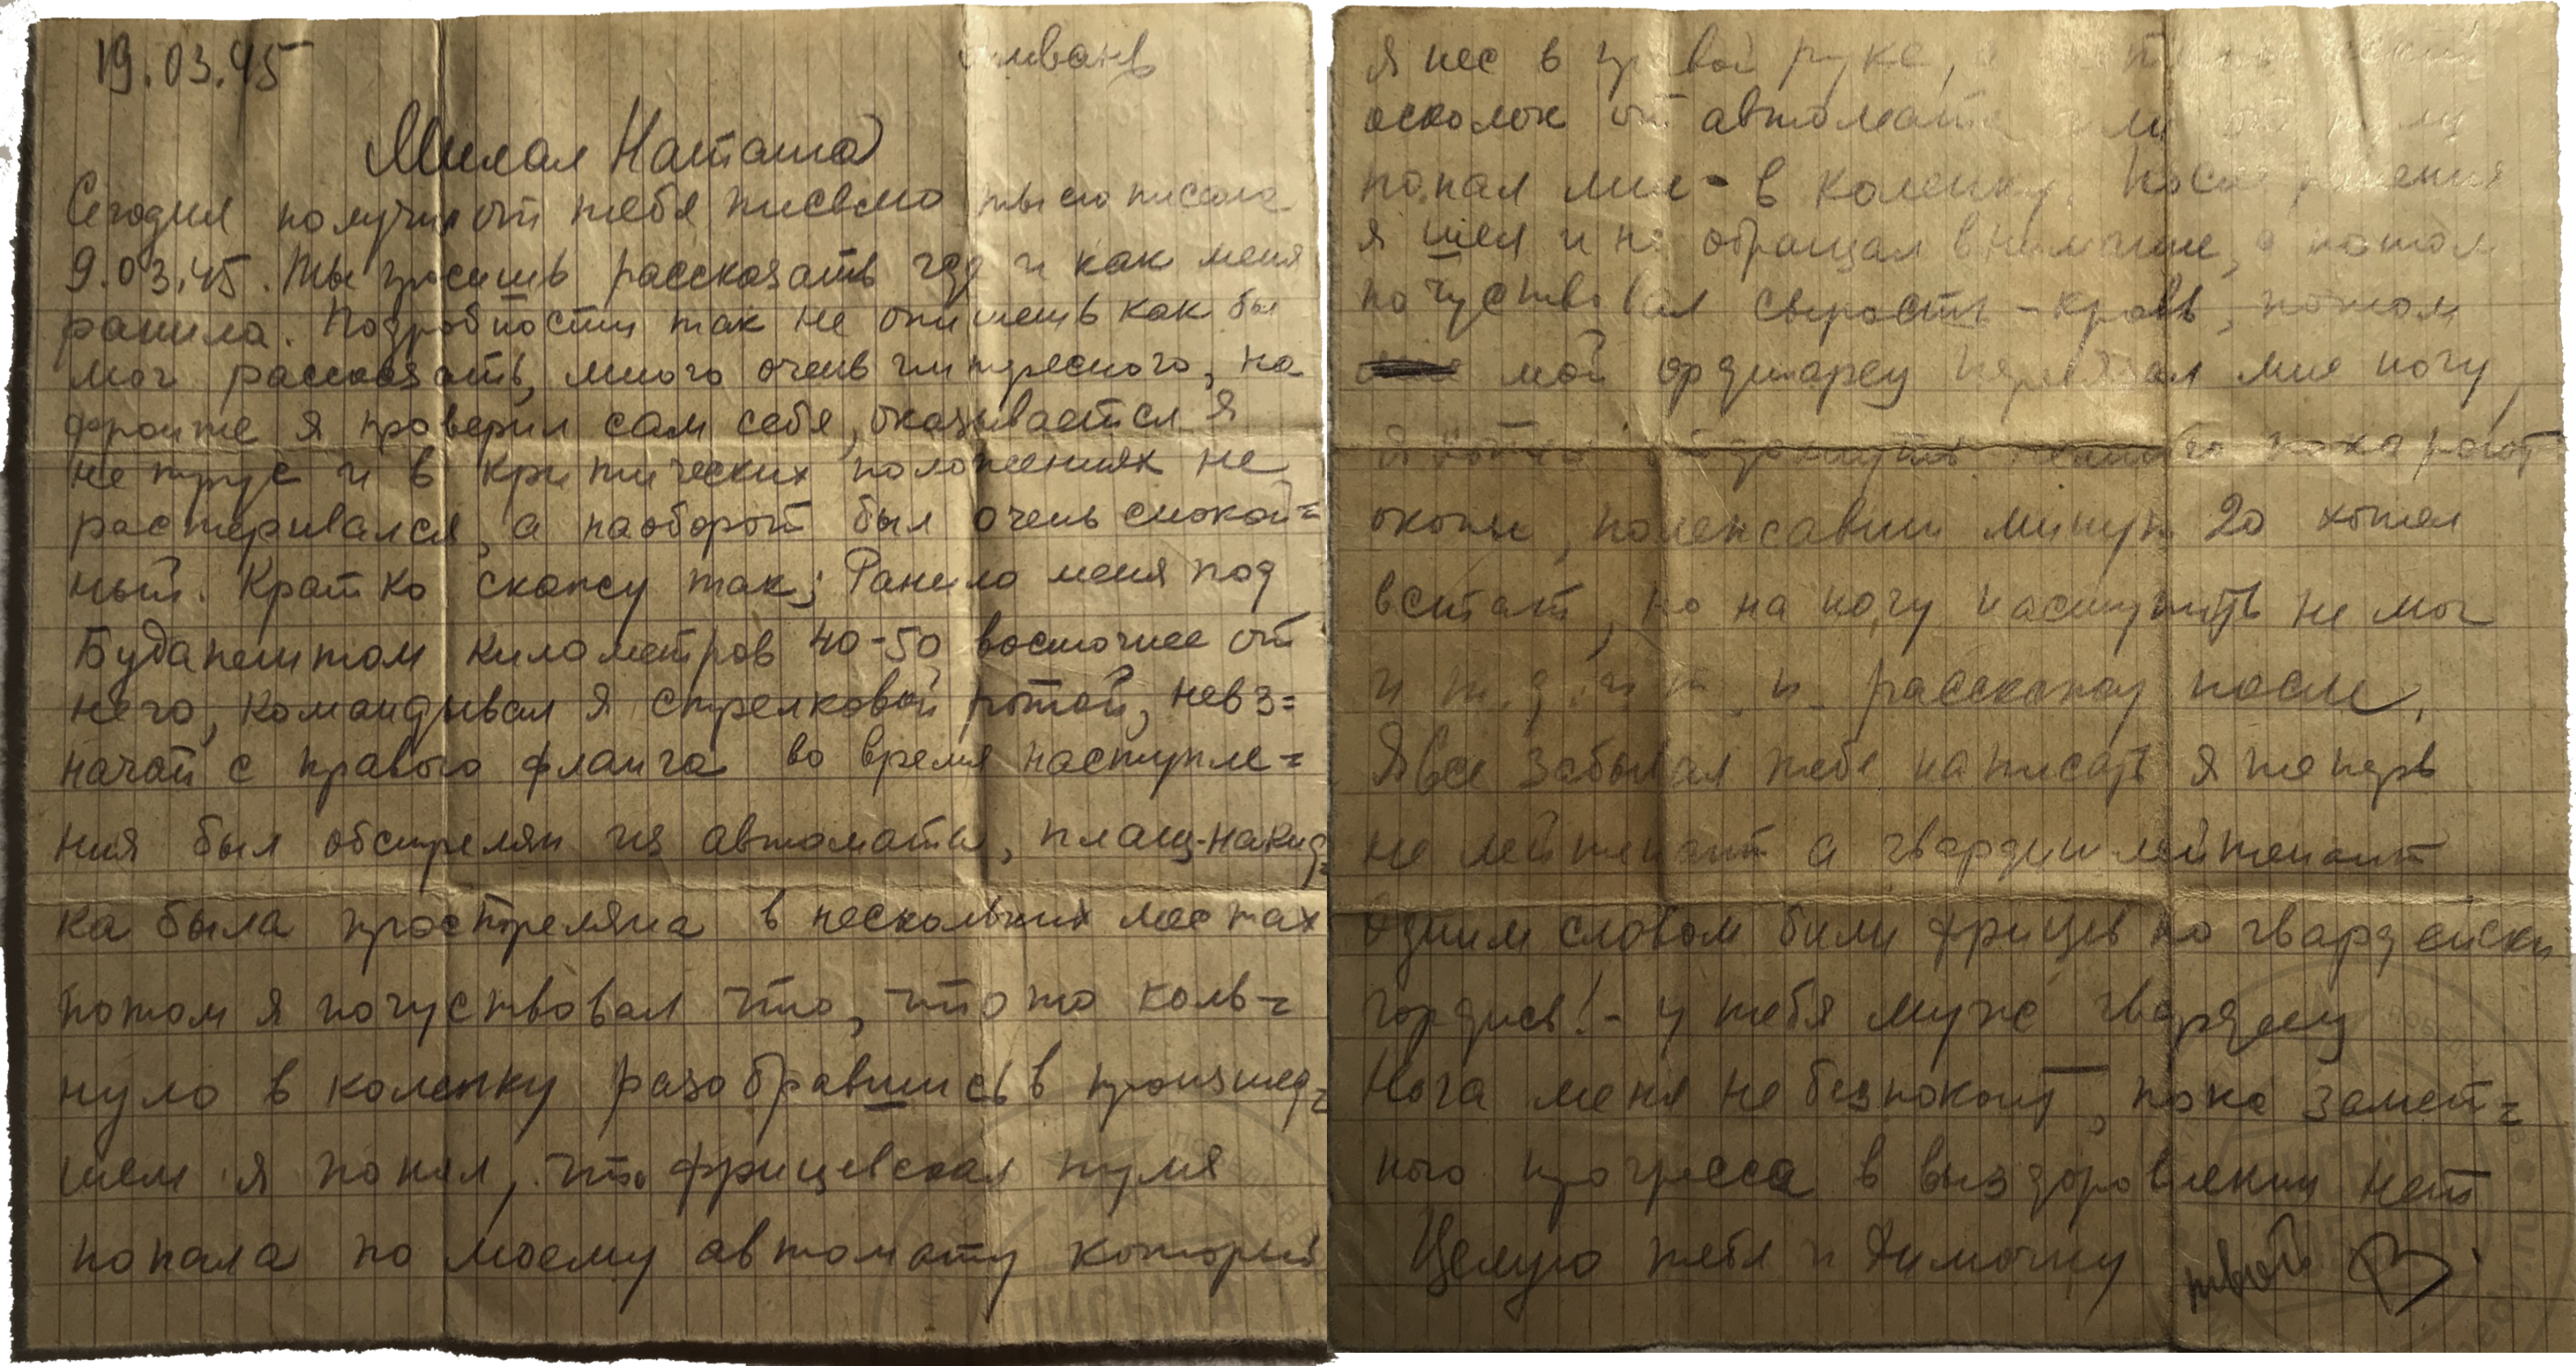 19.03.45
Милая Наташа
Сегодня получил от тебя письмо ты его писала
9.03.45. Ты просишь рассказать где и как меня
ранило. Подробности так не опишешь как бы
мог рассказать, много очень интересного, на
фронте я проверил сам себя, оказывается я
не трус и в критических положениях не
растеривался, а наоборот был очень спокой=
ный. Кратко скажу так; Ранило меня под
Будапештом километров 40-50 восточнее от
него, командывал я стрелковой ротой, невз=
начай с правого фланга во время наступле=
ния был обстрелян из автоматы, плащ-накид=
ка была простреляна в нескольких местах
потом я почуствовал что, что то коль=
нуло в коленку разобравшись в произшед=
шем я понял, что фрицевская пуля
попала по моему автомату который
я нес в правой руке,
осколок от автомата или от пули
попал мне - в коленку. После ранения
я шел и не обращал внимание, а потом
почуствовал сырость - кровь, потом
мой ординарец перевязал мне ногу,
пока роют
окопы, полежавши минут 20 хотел
встать, но на ногу наступить не мог
и т.д. и т. п. расскажу после.
Я все забывал тебе написать я теперь
не лейтенант а гвардии лейтенант
Одним словом били фрицев по гвардейски
гордись! - у тебя муж гвардеец
Нога меня не безпокоит, пока замет=
ного прогресса в выздоровлении нет
Целую тебя и Димочку твой
ПИСЬМА